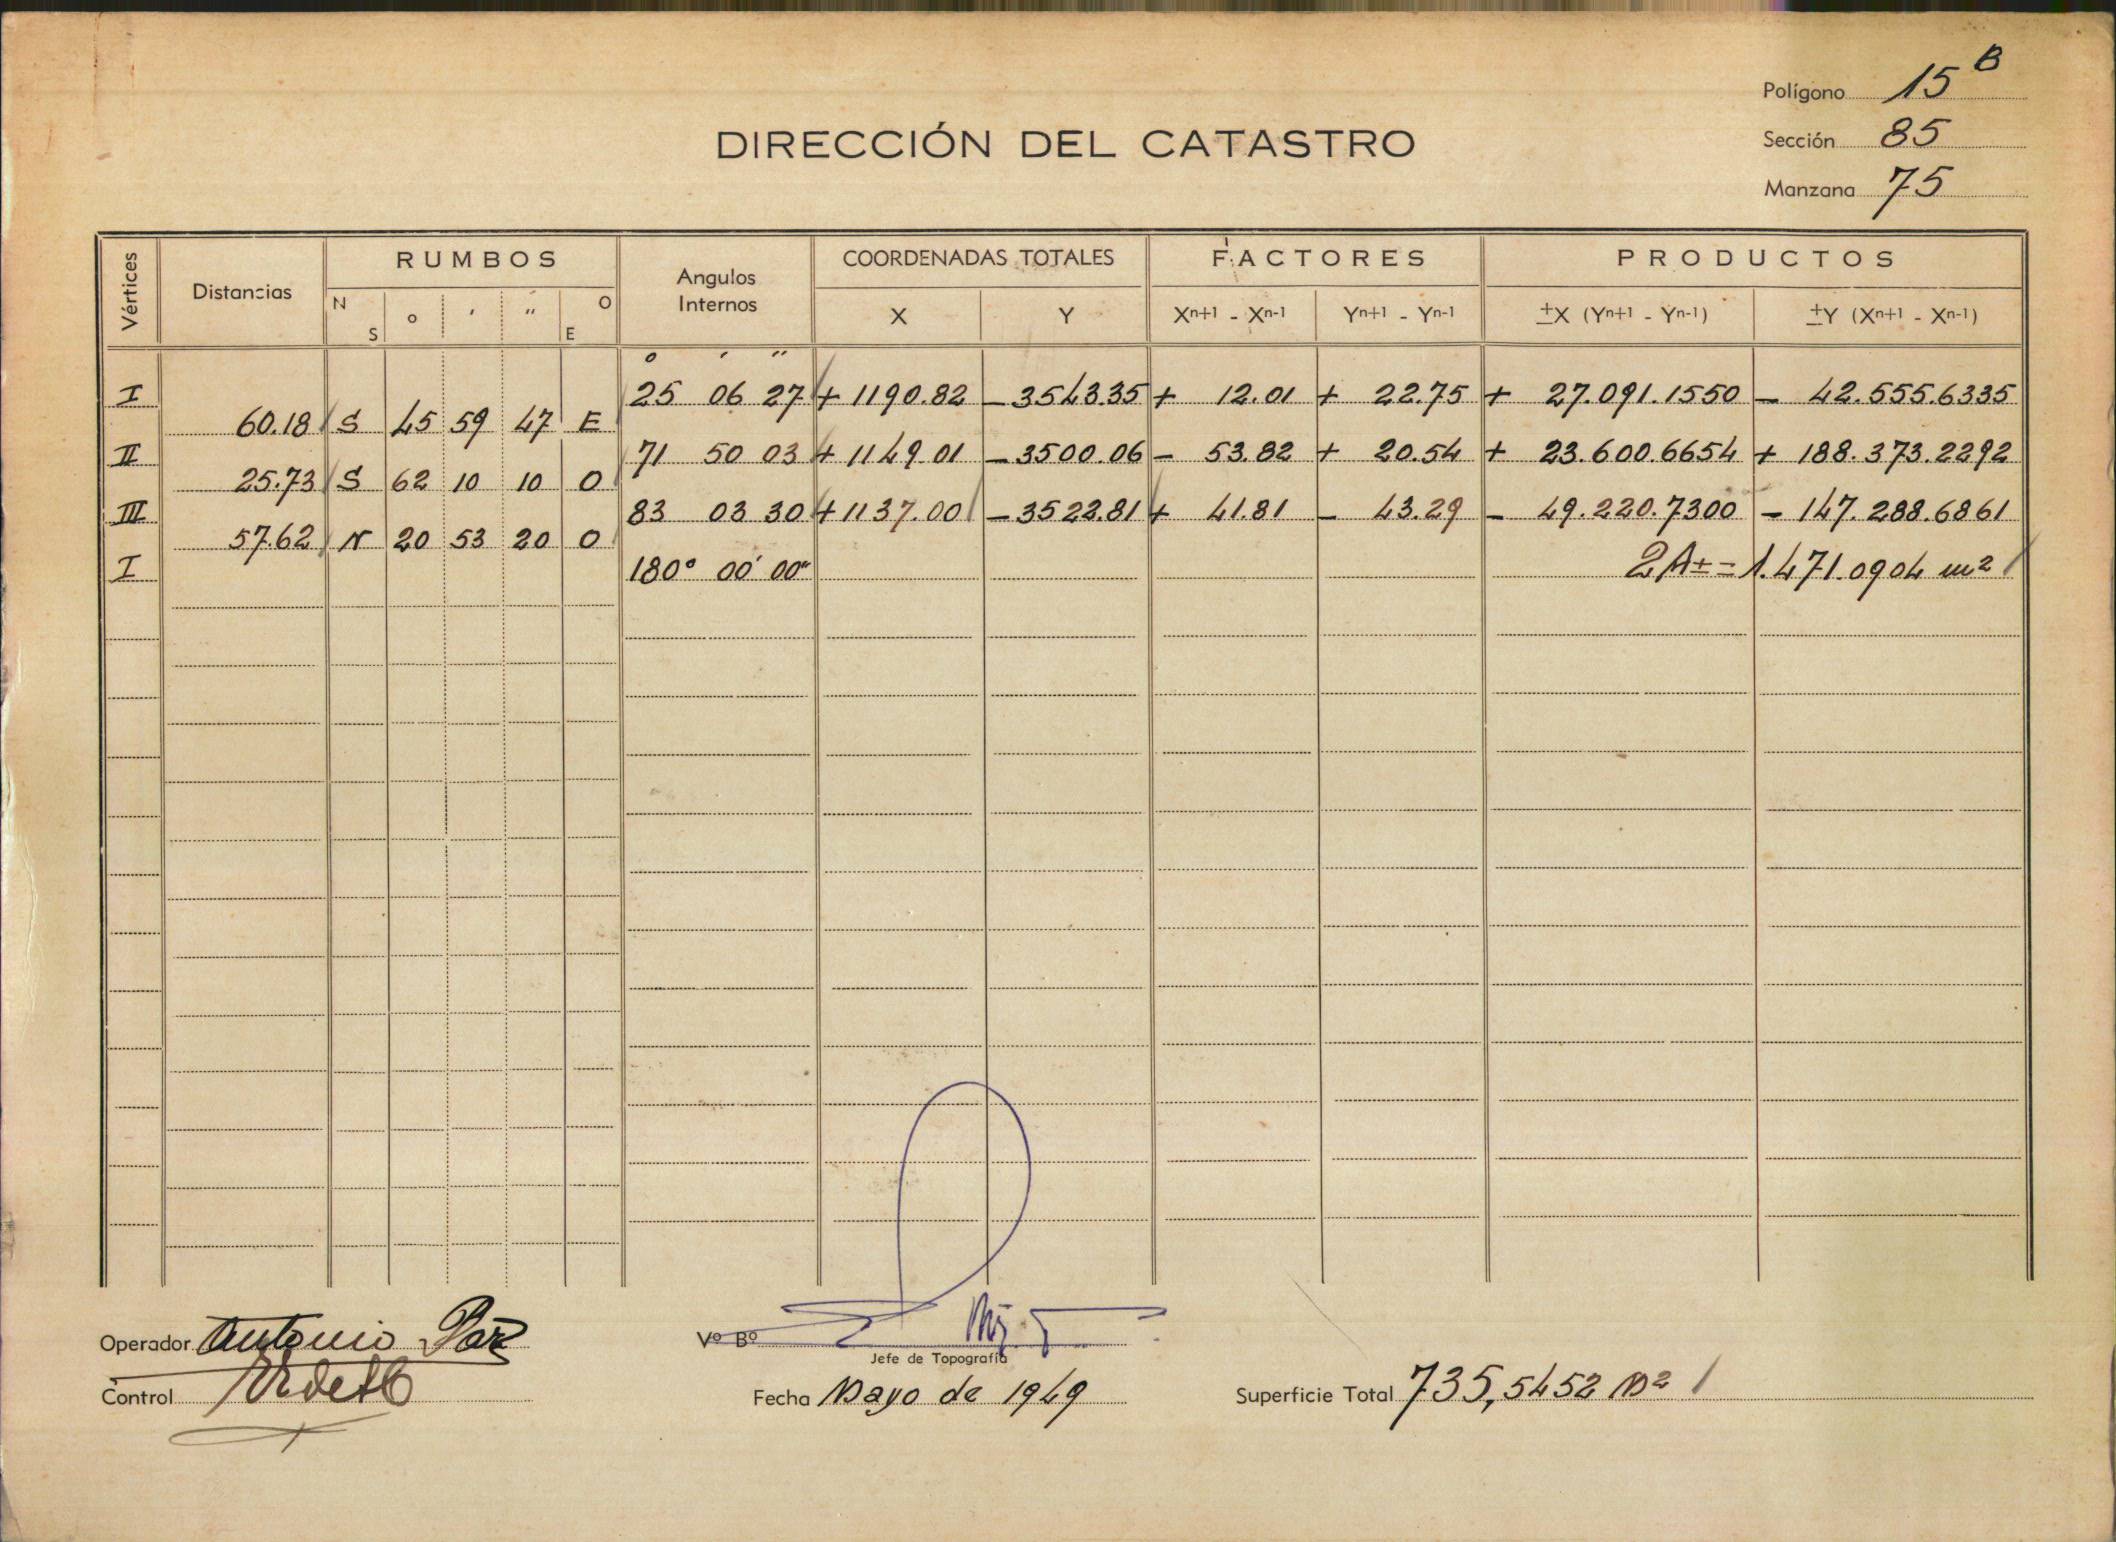 Polígono 15 B
DIRECCIÓN DEL CATASTRO
Sección 85
Manzana 75
Vértices Distancias RUMBOS Angulos Internos COORDENADAS TOTALES FACTORES PRODUCTOS
N S o ' " O E X Y Xn+1 - Xn-1 Yn+1 - Yn-1 ±X (Yn+1 - Yn-1) ±Y (Xn+1 - Xn-1)
o ' "
I 25 06 27 + 1190.82 - 3543.35 + 12.01 + 22.75 + 27.091.1550 - 42.555.6335
60.18 S 45 59 47 E
II 71 50 03 + 1149.01 - 3500.06 - 53.82 + 20.54 + 23.600.6654 + 188.373.2292
25.73 S 62 10 10 O
III 83 03 30 + 1137.00 - 3522.81 + 41.81 - 43.29 - 49.220.7300 - 147.288.6861
57.62 N 20 53 20 O
I 180° 00' 00" 2A± = 1.471.0904 m2
Operador Antonio Paz
Vº Bº
Jefe de Topografía
Control
Fecha Mayo de 1949
Superficie Total 735,5452 M2